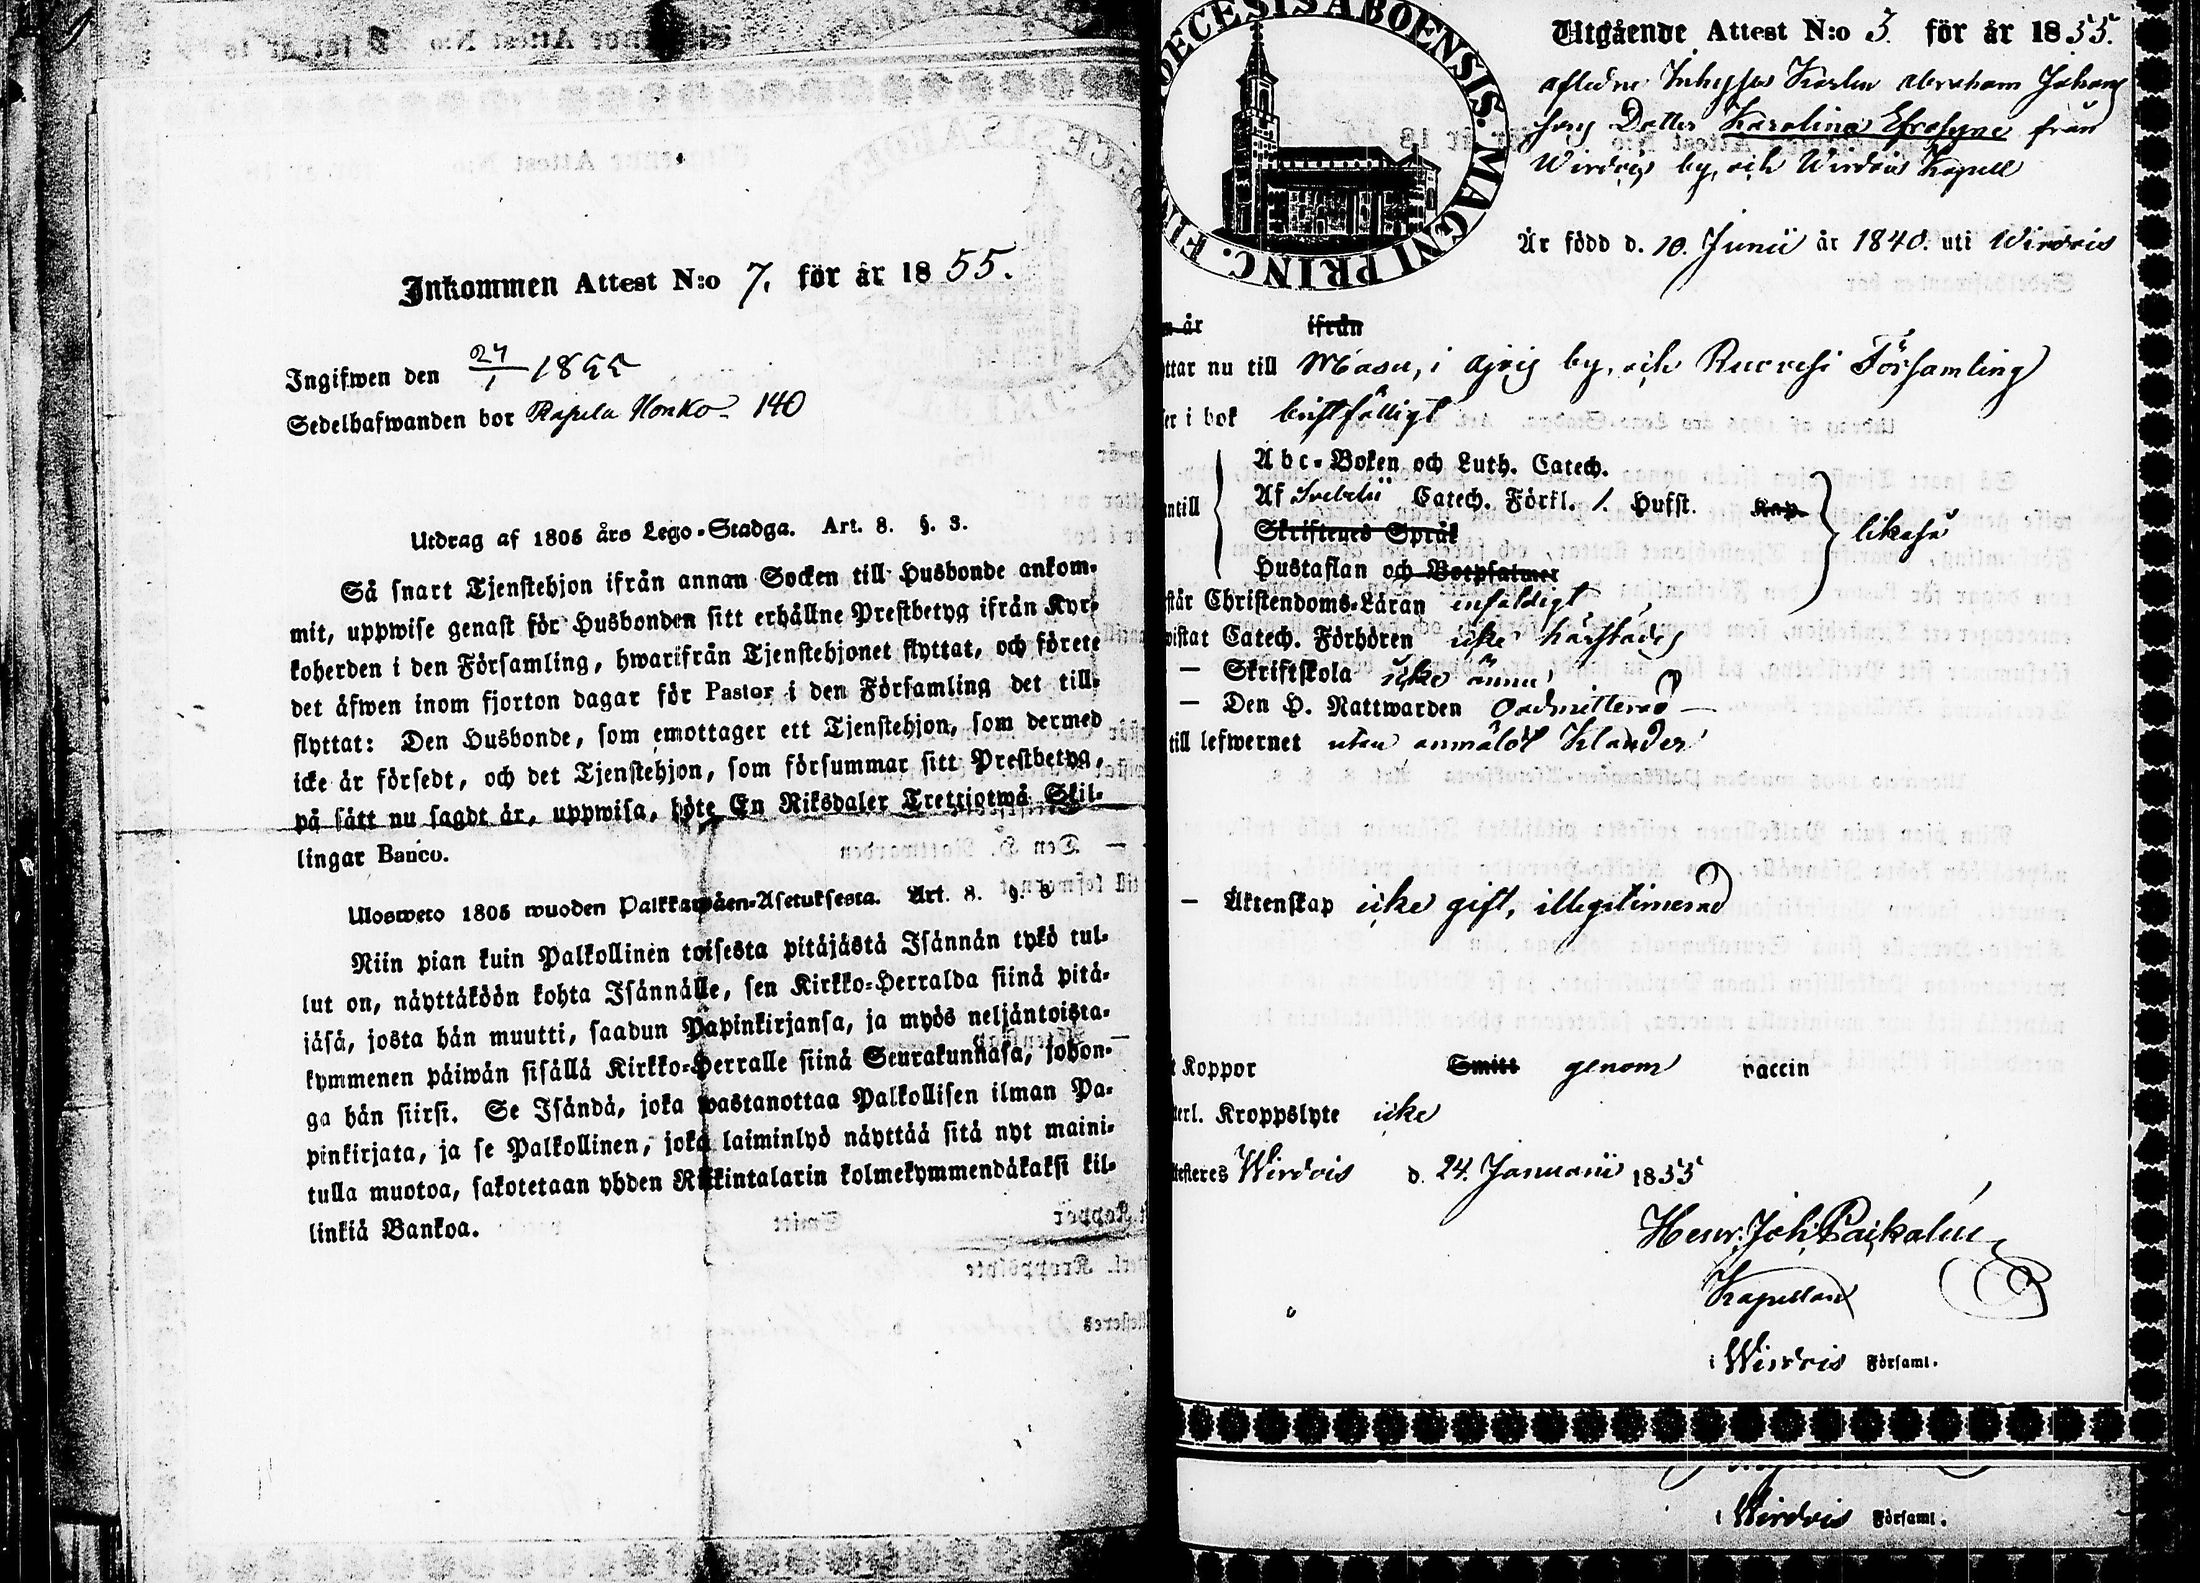 Inkommen Attest N:o 7. för år 1855.
Ingifwen den 27/1 1855
Sedelhafwanden bor Rapela Honko 140
Utdrag af 1805 års Lego-Stadga. Art. 8. §. 3.
Så snart Tjenstehjon ifrån annan Socken till Husbonde ankom-
mit, uppwise genast för Husbonden sitt erhållne Prestbetyg ifrån Kyr-
koherden i den Församling, hwarifrån Tjenstehjonet flyttat, och förete
det äfwen inom fjorton dagar för Pastor i den Församling det till-
flyttat: Den Husbonde, som emottager ett Tjenstehjon, som dermed
icke är försedt, och det Tjenstehjon, som försummar sitt Prestbetyg,
på sätt nu sagdt är, uppwisa, böte En Riksdaler Trettiotwå Skil-
lingar Banco.
Ulosweto 1805 wuoden Palkkawäen-Asetuksesta. Art. 8. §. 8
Niin pian kuin Palkollinen toisesta pitäjästä Isännän tykö tul-
lut on, näyttäköön kohta Isännälle, sen Kirkko-Herralda siinä pitä-
jäsä, josta hän muutti, saadun Papinkirjansa, ja myös neljäntoista-
kymmenen päiwän sisällä Kirkko-Herralle siinä Seurakunnasa, johon-
ga hän siirsi. Se Isändä, joka wastanottaa Palkollisen ilman Pa-
pinkirjata, ja se Palkollinen, joka laiminlyö näyttää sitä nyt maini-
tulla muotoa, sakotetaan yhden Riikintalarin kolmekymmendäkaksi kil-
linkiä Bankoa.
DECESIS ABOENSIS. MAGNI PRINC. FIN
Utgående Attest N:o 3. för år 1855.
aflidne Inhyses Karlen Abraham Johans
sons Dotter Karolina Efrosyne från
Wirdois by, och Wirdois Kapell
Är född d. 10. Junii år 1840. uti Wirdois
n år ifrån
ttar nu till Masu, i by, och Ruovesi Församling
er i bok bristfälligt
Abc-Boken och Luth. Catech.
ntill Af Svebelii Catech. Förkl. 1. Hufst. Kap. likaså
Skriftenes Språk
Hustaflan och Botpsalmer
står Christendoms-Läran enfäldigt
wistat Catech. Förhören icke härstädes
— Skriftskola icke ännu
— Den H. Nattwarden Oadmitterad —
till lefwernet utan anmäldt klander
— Äktenskap icke gift, illegitimerad
t Koppor Smitt genom vaccin
terl. Kroppslyte icke
ttesteres Wirdois d. 24. Januarii 1855
Henr. Joh. Paikalin
Kapellan
i Wirdois Församl.
i Wirdois Församl.